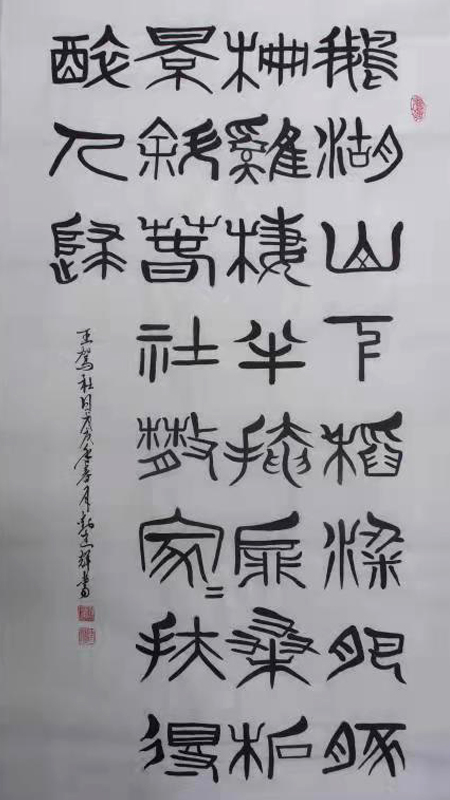 鵝湖山下稻粱肥豚
柵雞棲半掩扉桑柘
景斜春社散家=扶得
醉人歸
王駕社日戊戌年春月 輝書